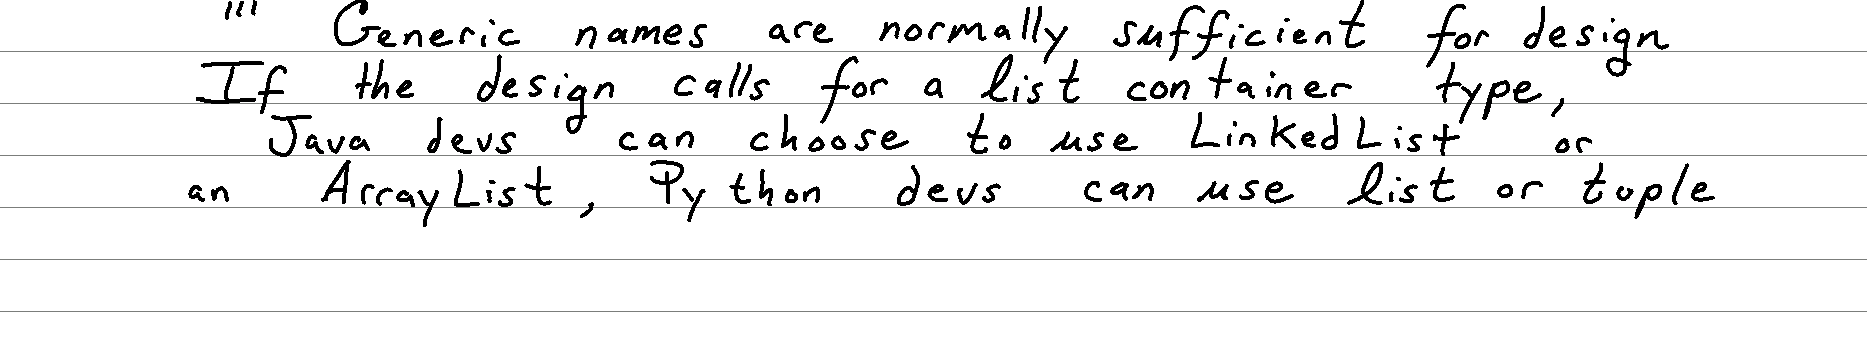 ''' Generic names are normally sufficient for design
If the design calls for a list container type,
Java devs can choose to use LinkedList or
an ArrayList, Python devs can use list or tuple